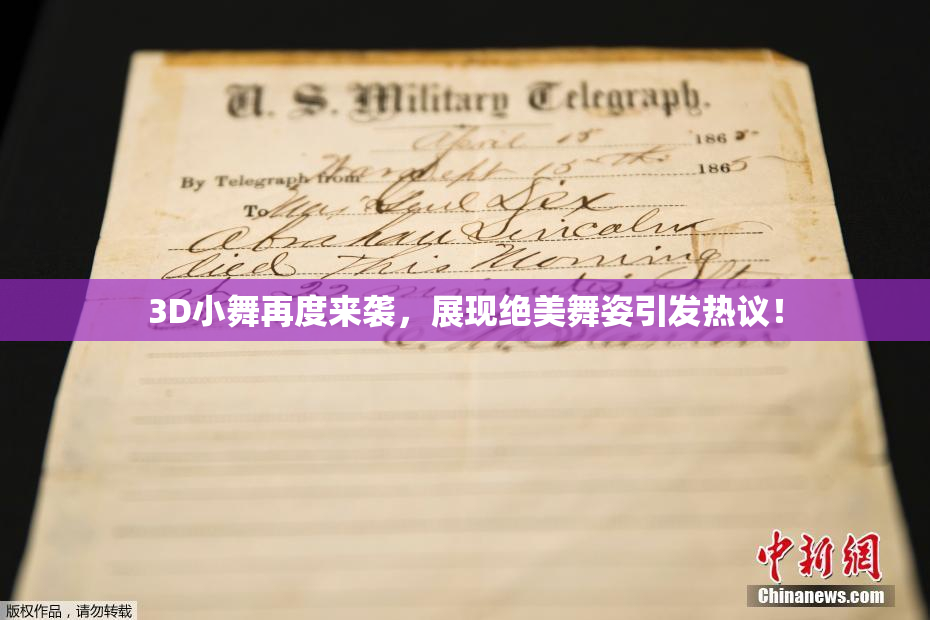 U. S. Military Telegraph.
April 15 1865
By Telegraph from War Dept 15th 1865
To Maj Genl Dix
Abraham Lincoln
died This Morning
22 minutes after
3D小舞再度来袭，展现绝美舞姿引发热议！
中新网
Chinanews.com
版权作品，请勿转载